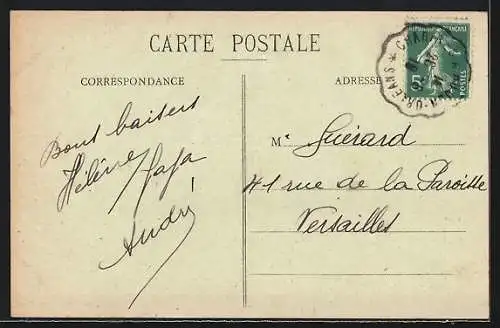 CARTE POSTALE
CORRESPONDANCE
ADRESSE
RÉPUBLIQUE FRANÇAISE
5c
POSTES
ORLÉANS *
Bons baisers
Hélène
André
M Guérard
41 rue de la Paroisse
Versailles